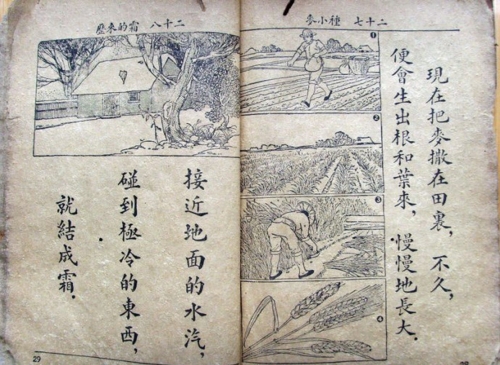 二十七 種小麥
現在把麥撒在田裏，不久，
便會生出根和葉來，慢慢地長大．
1
2
3
4
二十八 霜的來歷
接近地面的水汽，
碰到極冷的東西，
就結成霜．
29